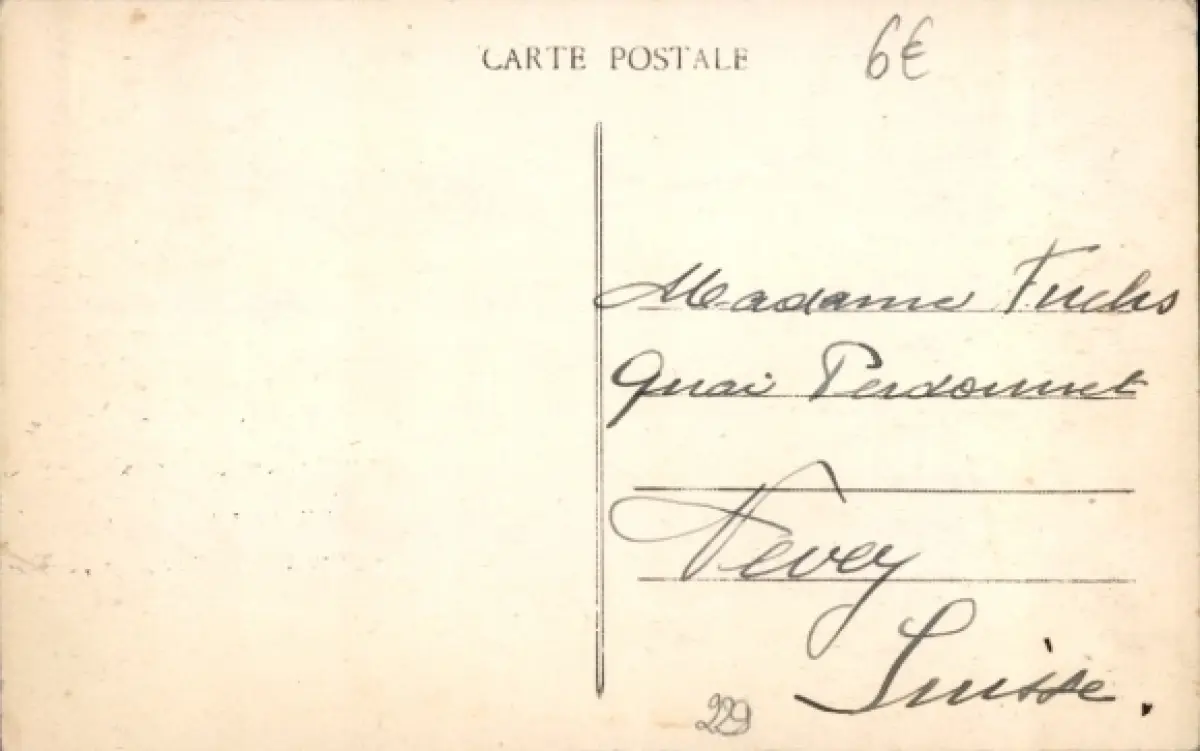 CARTE POSTALE
6€
Madame Fuchs
Quai Perdonnet
Vevey
Suisse.
229